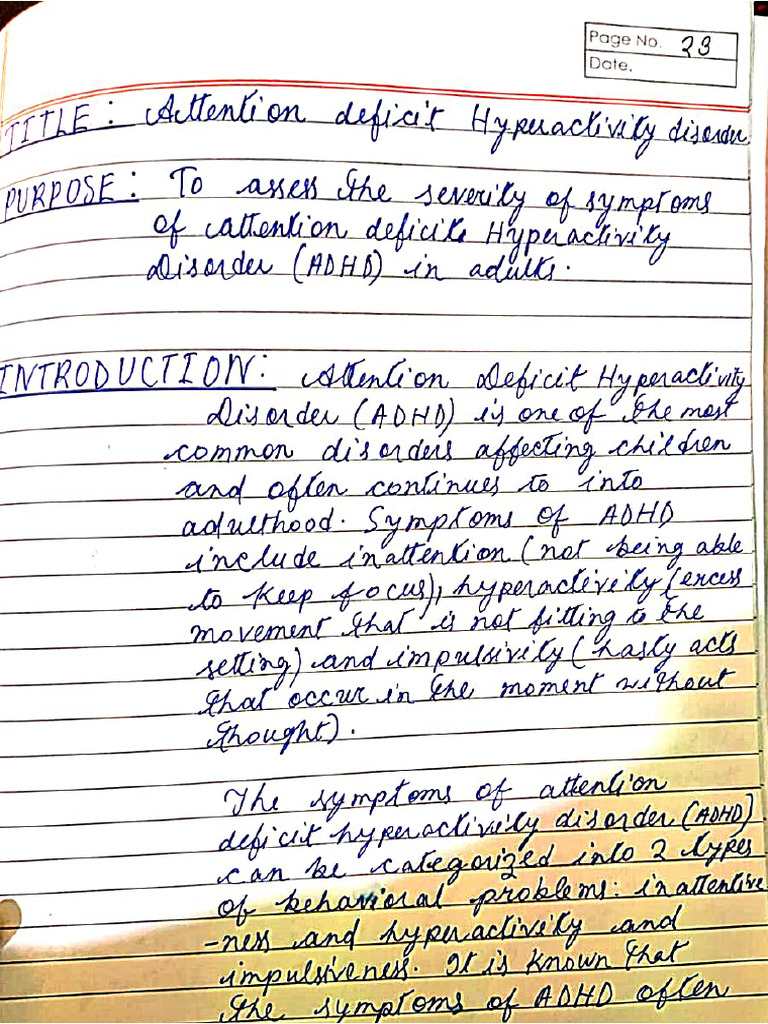 Page No. 23
Date.
TITLE: Attention deficit Hyperactivity disorder
PURPOSE: To assess the severity of symptoms
of attention deficit Hyperactivity
Disorder (ADHD) in adults.
INTRODUCTION: Attention Deficit Hyperactivity
Disorder (ADHD) is one of the most
common disorders affecting children
and often continues to into
adulthood. Symptoms of ADHD
include inattention (not being able
to keep focus), hyperactivity (excess
movement that is not fitting to the
setting) and impulsivity (hasty acts
that occur in the moment without
thought).
The symptoms of attention
deficit hyperactivity disorder (ADHD)
can be categorized into 2 types
of behavioral problems: inattentive
-ness and hyperactivity and
impulsiveness. It is known that
the symptoms of ADHD often